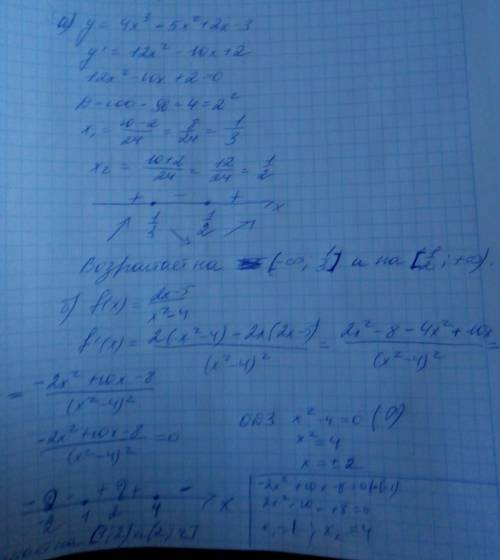 а) y = 4x³ - 5x² + 2x - 3
y' = 12x² - 10x + 2
12x² - 10x + 2 = 0
D = 100 - 96 = 4 = 2²
x₁ = (10-2)/24 = 8/24 = 1/3
x₂ = (10+2)/24 = 12/24 = 1/2
+ - + x
1/3 1/2
Возрастает на (-∞, 1/3] и на [1/2; +∞).
б) f(x) = (2x-5)/(x²-4)
f'(x) = (2(x²-4) - 2x(2x-5))/(x²-4)² = (2x² - 8 - 4x² + 10x)/(x²-4)² =
= (-2x² + 10x - 8)/(x²-4)²
(-2x² + 10x - 8)/(x²-4)² = 0
ОДЗ x² - 4 = 0
x² = 4
x = ± 2
-2x² + 10x - 8 = 0
x₁ = 1, x₂ = 4
- - + + - x
-2 1 2 4
на [1;2) и (2; 4]